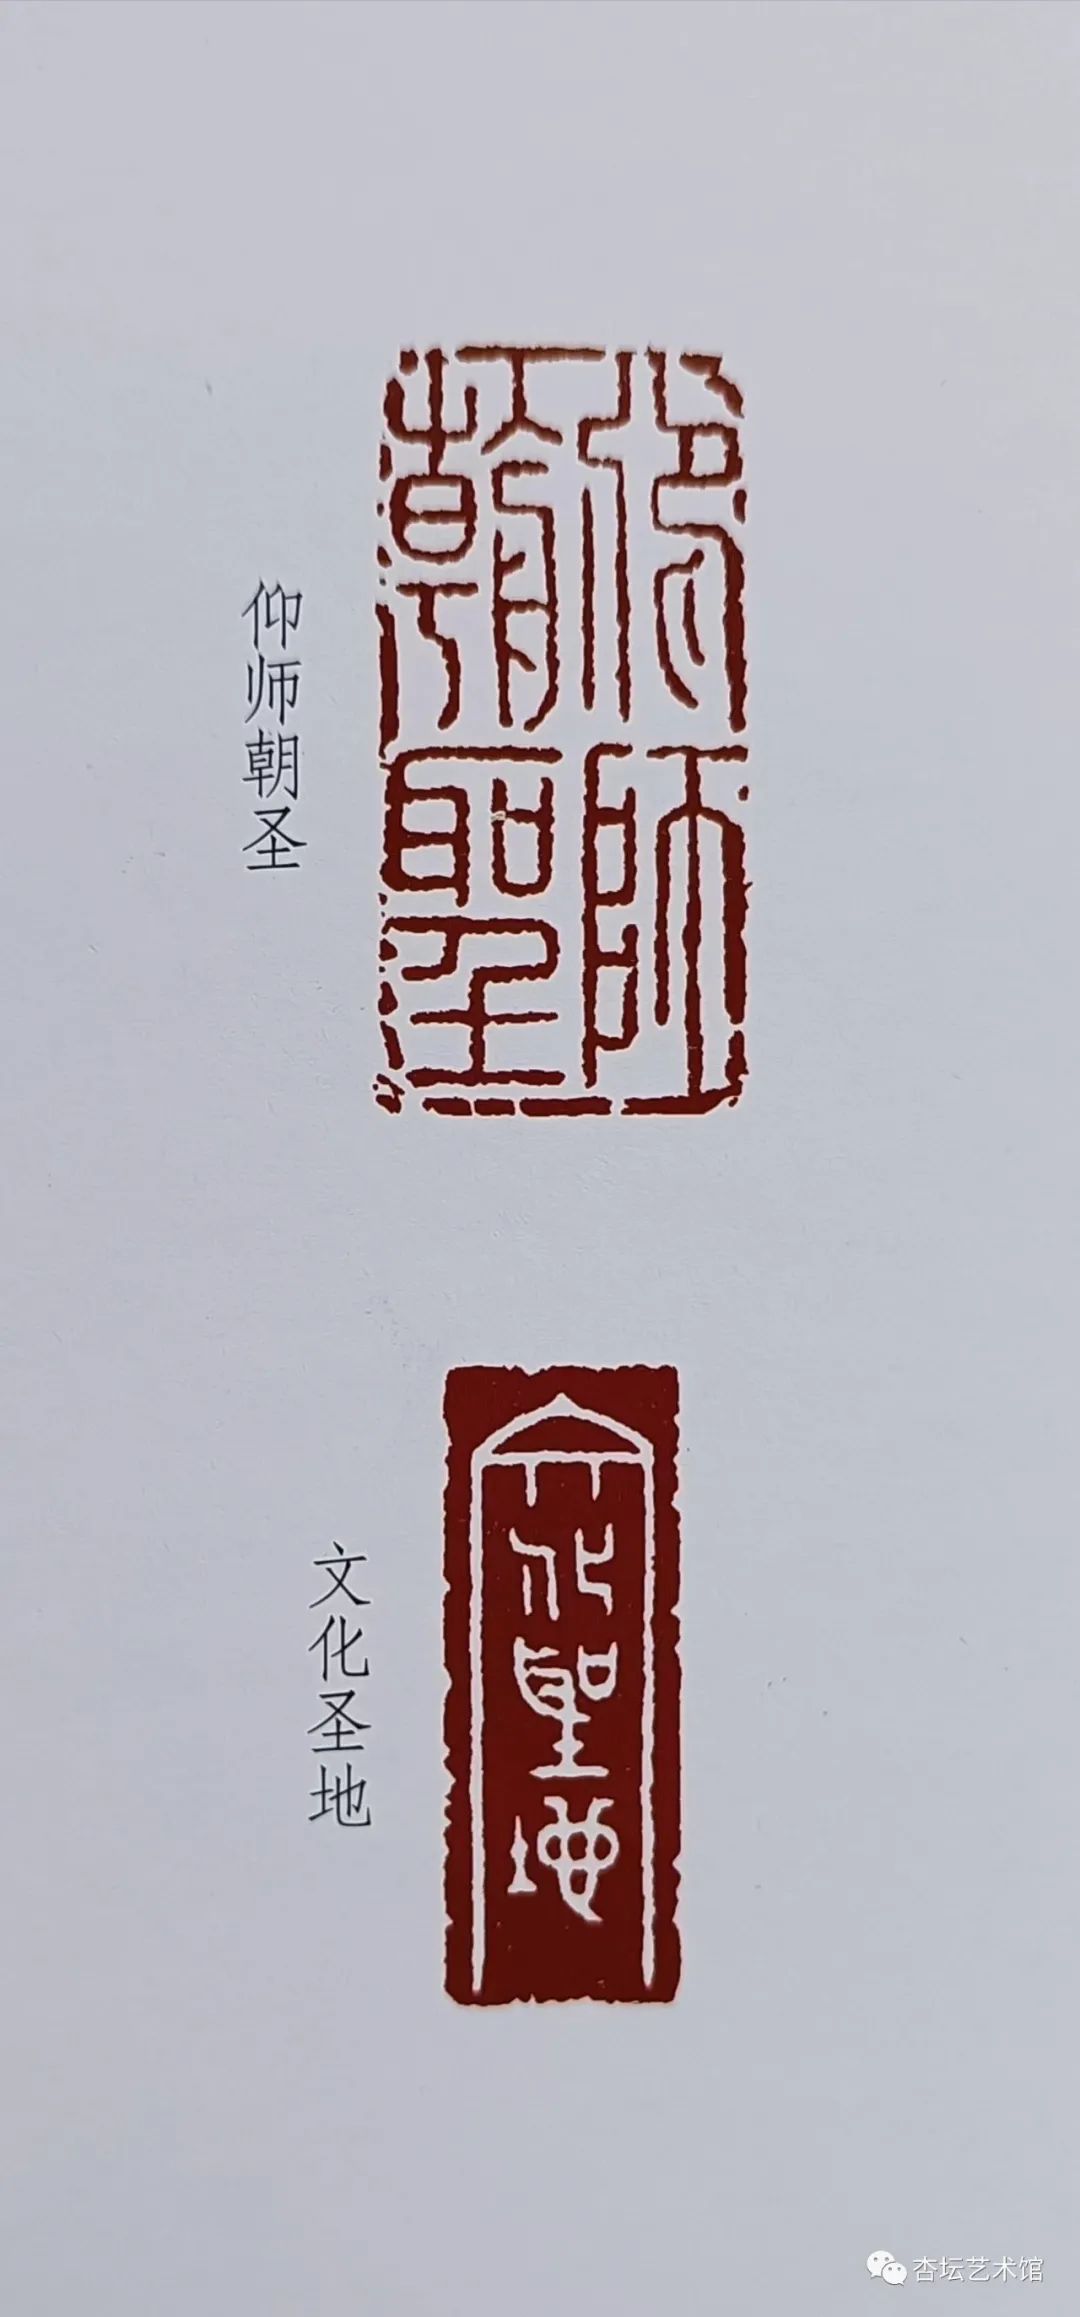 仰师朝圣
仰師朝聖
文化圣地
文化聖地
杏坛艺术馆